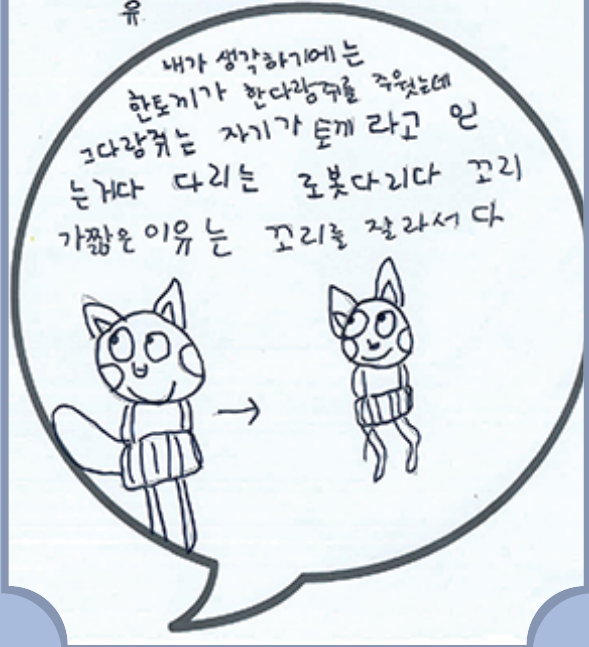 유
내가 생각하기에는
한토끼가 한다람쥐를 주웠는데
그다람쥐는 자기가 토끼 라고 믿
는거다 다리는 로봇다리다 꼬리
가짧은 이유는 꼬리를 잘라서 다